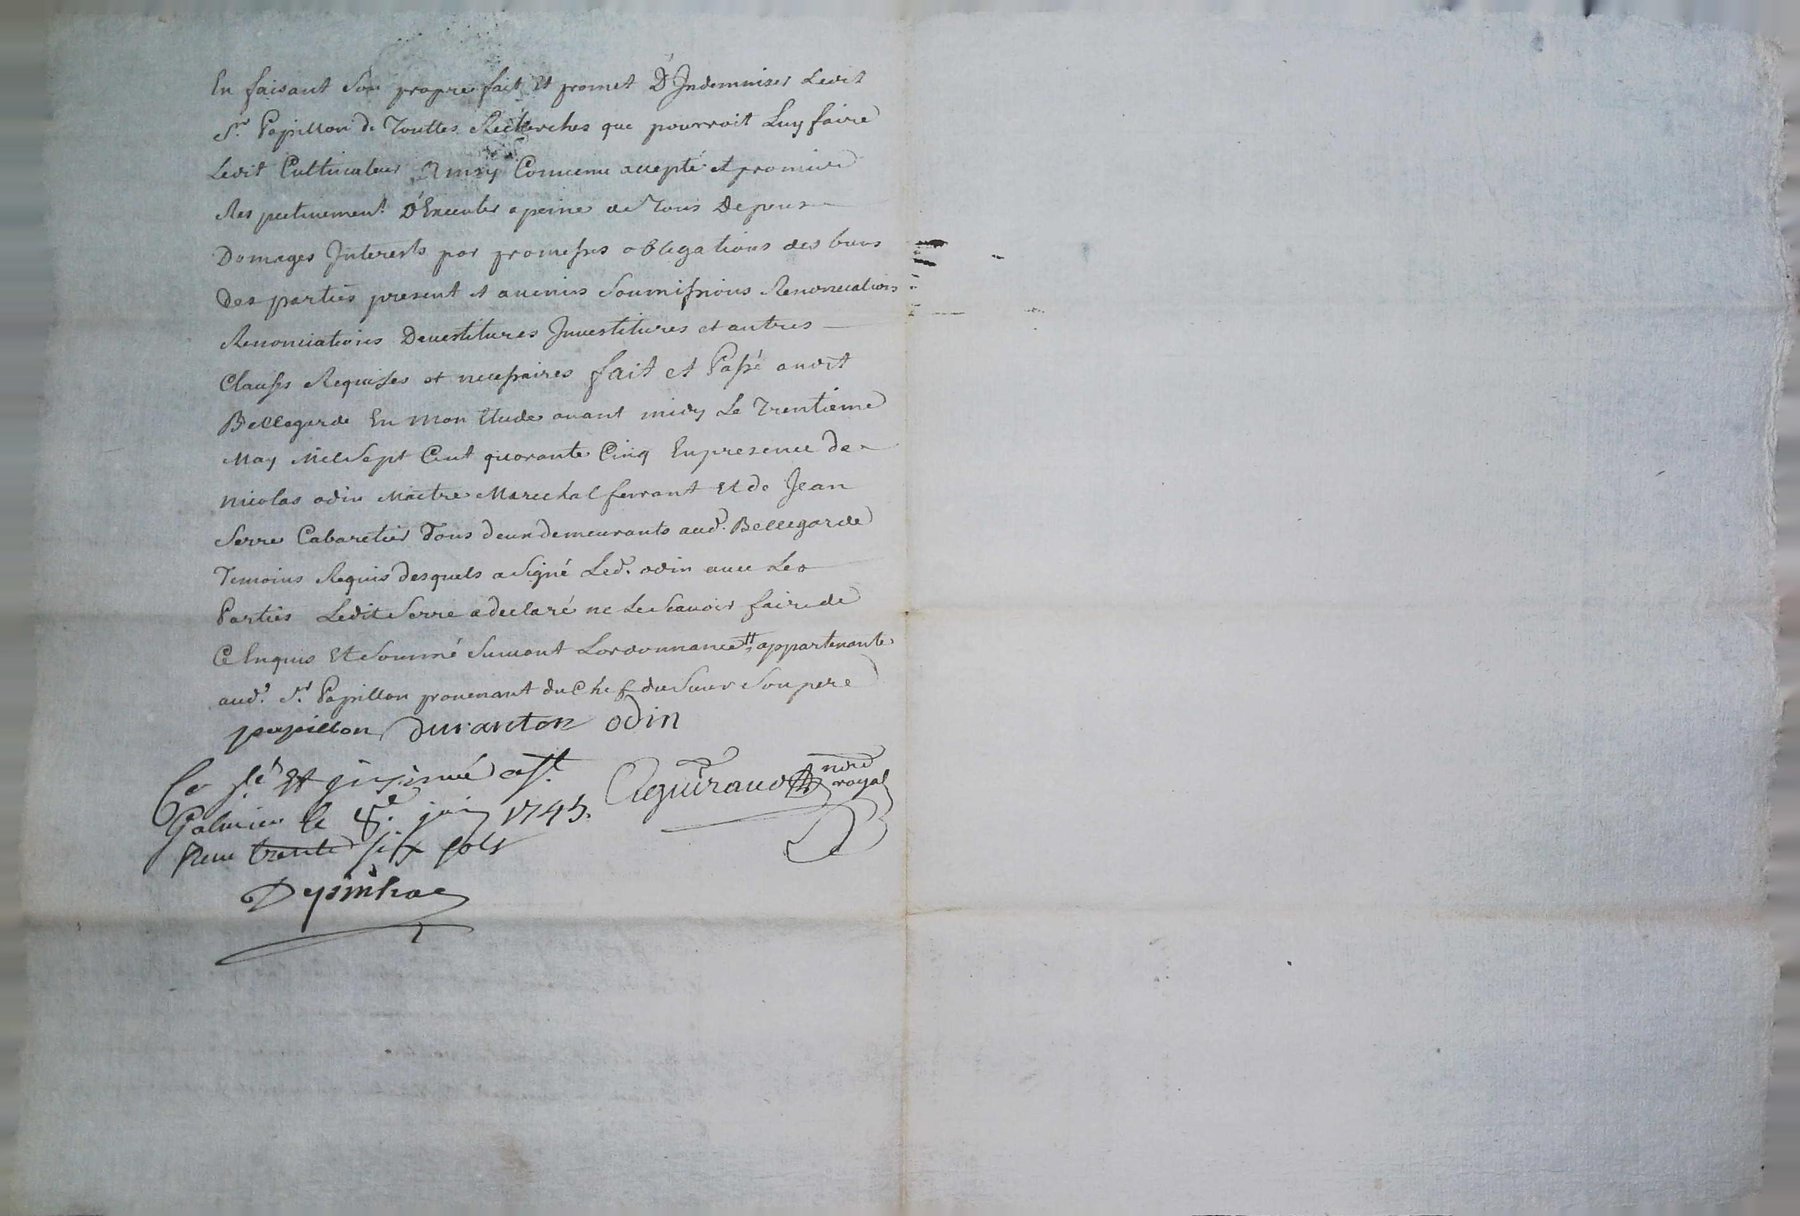 En faisant Son propre fait Et promet D'Indemniser Ledit
Sr. Papillon de Touttes Recherches que pourroit Luy faire
Ledit Cultivateur Ainsy Convenu accepté et promis
Respectivement D'Executer a peine de Tous Depens
Domages Interests par promesses obligations des biens
Des parties present et avenirs Soumissions Renonciations
Renonciations Devestitures Investitures et autres
Clauses Requises et necessaires fait et Passé audit
Bellegarde En mon Etude avant midy Le Trentieme
May Mil Sept Cent quarante Cinq En presence de
Nicolas odin Maitre Marechal ferrant Et de Jean
Serre Cabaretier Tous deux demeurants aud. Bellegarde
Temoins Requis desquels a Signé Led. odin avec Les
Parties Ledit Serre a declaré ne Le Scavoir faire de
Ce Enquis Et Sommé Suivant Lordonnance # appartenante
aud. Sr. Papillon provenant du Chef du Sieur Son pere
papillon Duranton odin
Galmier le 8e. juin 1745.
trente six sols
royal